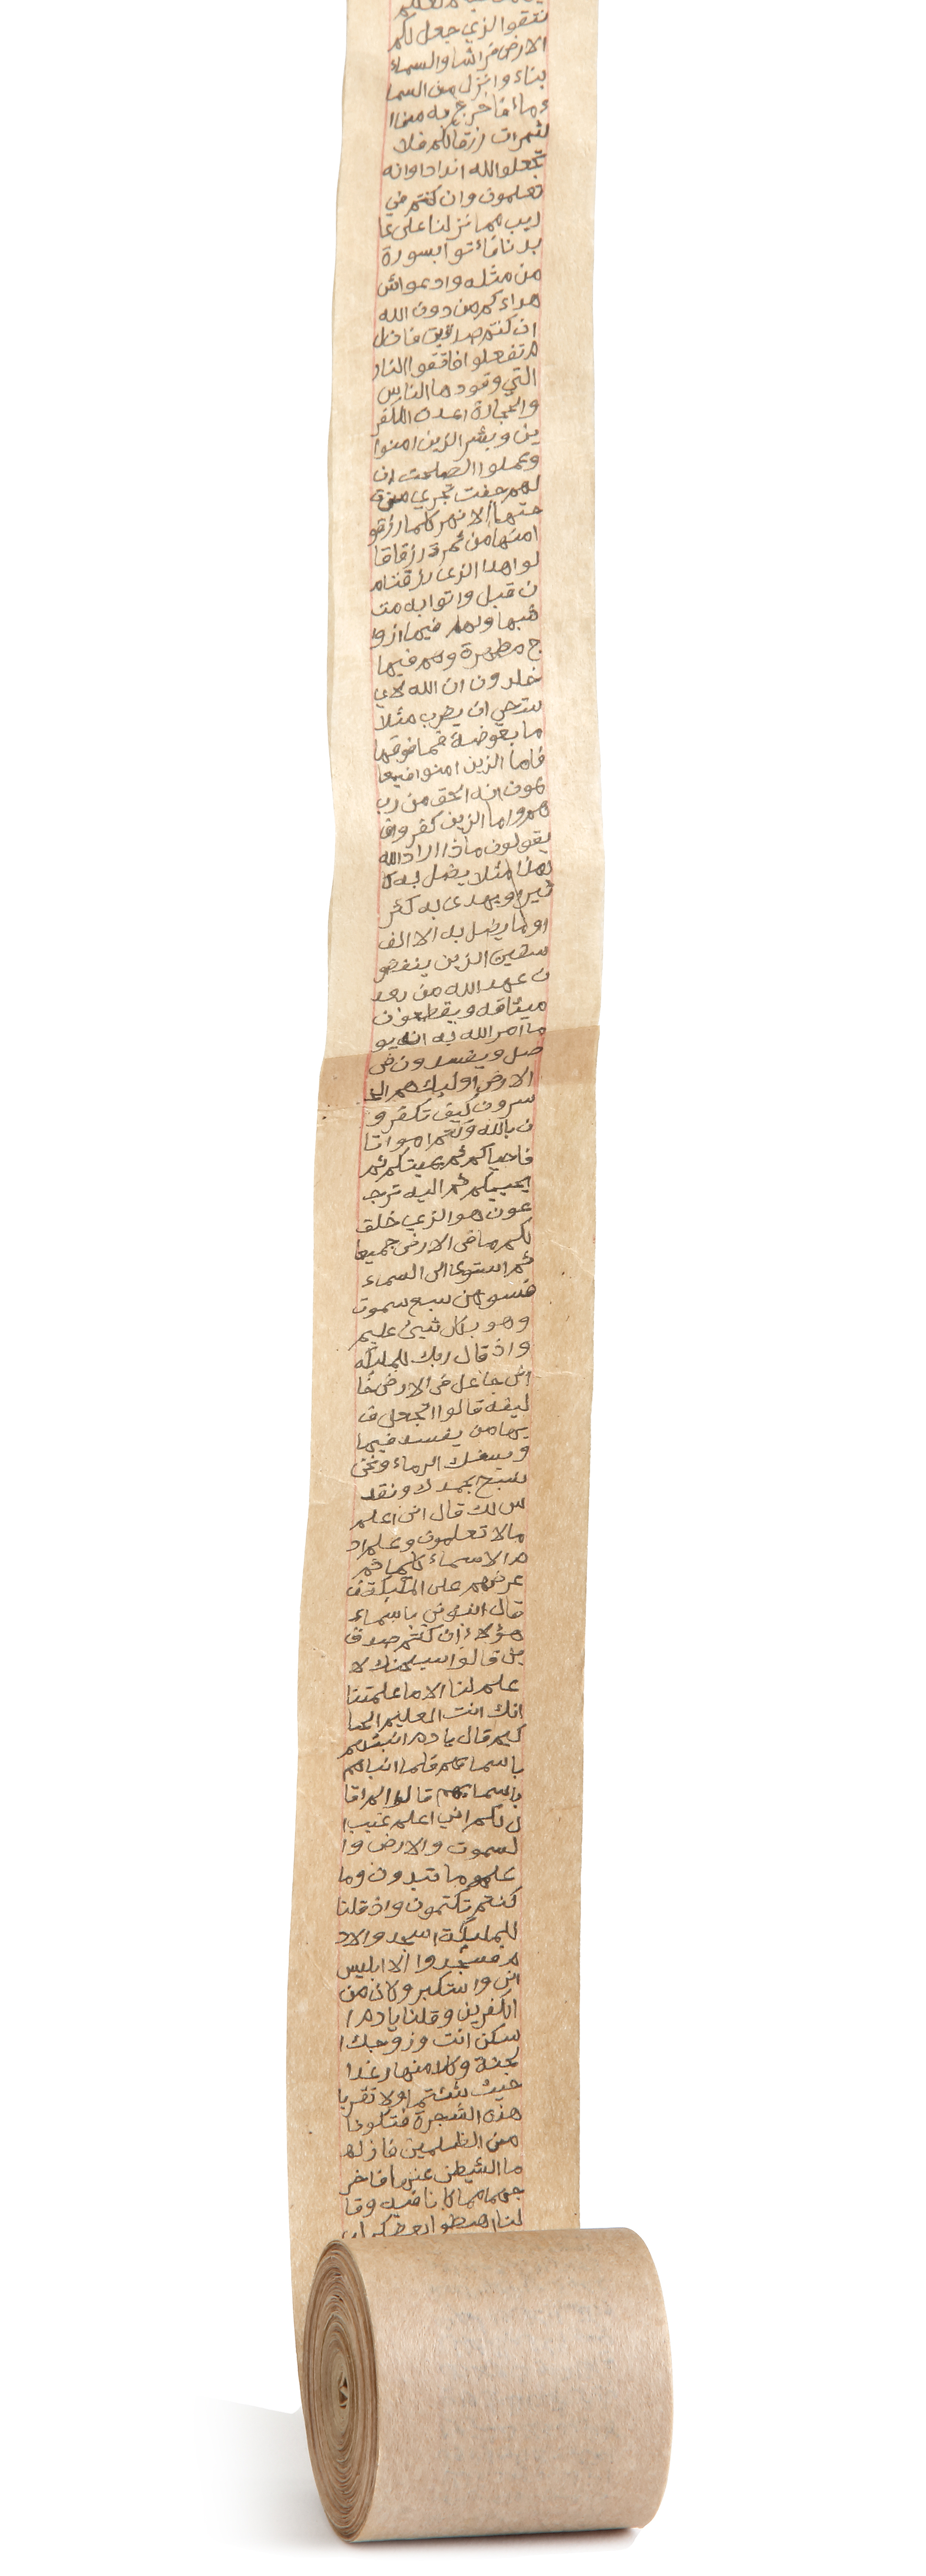 تتقوا الزي جعل لكم
الارض فراشا والسماء
بناء وانزل من السما
ء ماء فا خرج به من ا
لثمرات رزقا لكم فلا
تجعلوا لله اندادا وانه
تعلمون وان كنتم في
ريب مما نزلنا على عا
بدنا فاءتوا بسورة
من مثله وادعوا ش
هداء كم من دون الله
ان كنتم صدقين فان ل
م تفعلوا فاتقوا النار
التي وقودها الناس
والحجارة اعدت للكفر
ين وبشر الزين امنوا
وعملوا الصلحت ان
لهم جنت تجري من ت
حتها الانهر كلما رزقو
ا منها من ثمرة رزقا قا
لوا هذا الزي رزقنا م
ن قبل واتوا به مت
شبها ولهم فيها ازو
ج مطهرة وهم فيها
خلدون ان الله لا ي
ستحي ان يضرب مثلا
ما بعوضة فما فوقها
فاما الزين امنوا فيعا
مون انه الحق من رب
هم واما الزين كفروا ف
يقولون ماذا اراد الله
بهذا مثلا يضل به ك
ثيرا ويهدى به كثر
ا وما يضل به الا الف
سقين الزين ينقضو
ن عهد الله من بعد
ميثاقه ويقطعون
ما امر الله به ان يو
صل ويفسدون في
الارض اوليك هم الخ
سرون كيف تكفرو
ن بالله وكنتم امواتا
فاحياكم ثم يميتكم ثم
يحييكم ثم اليه ترج
عون هو الزي خلق
لكم ما في الارض جميعا
ثم استوى الى السماء
فسوهن سبع سموت
وهو بكل شيئ عليم
واذ قال ربك للمليكه
انى جاعل في الارض خا
ليفه قالوا اتجعل ف
يها من يفسد فيها
ويسفك الرماء ونحن
نسبح بحمدك ونقد
س لك قال انى اعلم
ما لا تعلمون وعلم اد
م الاسماء كلها ثم
عرضهم على المليكة ف
قال انبئوني باسماء
هؤلاء ان كنتم صدق
ين قالوا سبحنك لا
علم لنا الا ما علمتنا
انك انت العليم الحا
كيم قال يادم انبئهم
باسماءهم فلما انباهم
باسمايهم قال الم اقا
ل لكم اني اعلم غيب ا
لسموت والارض وا
علم ما تبدون وما
كنتم تكتمون واذ قلنا
للمليكة اسجدوا لاد
م فسجدوا الا ابليس
ابى واستكبر وكان من
الكفرين وقلنا يادم ا
سكن انت وزوجك ا
لجنة وكلا منها رغدا
حيث شئتما ولا تقربا
هذه الشجرة فتكونا
من الظلمين فازله
ما الشيطن عنها فاخر
جهما مما كانا فيه وقا
لنا اهبطوا بعضكم